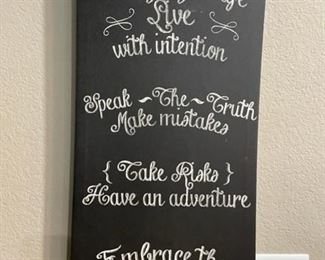 Live
with intention
Speak ~ The ~ Truth
Make mistakes
{ Take Risks }
Have an adventure
Embrace th